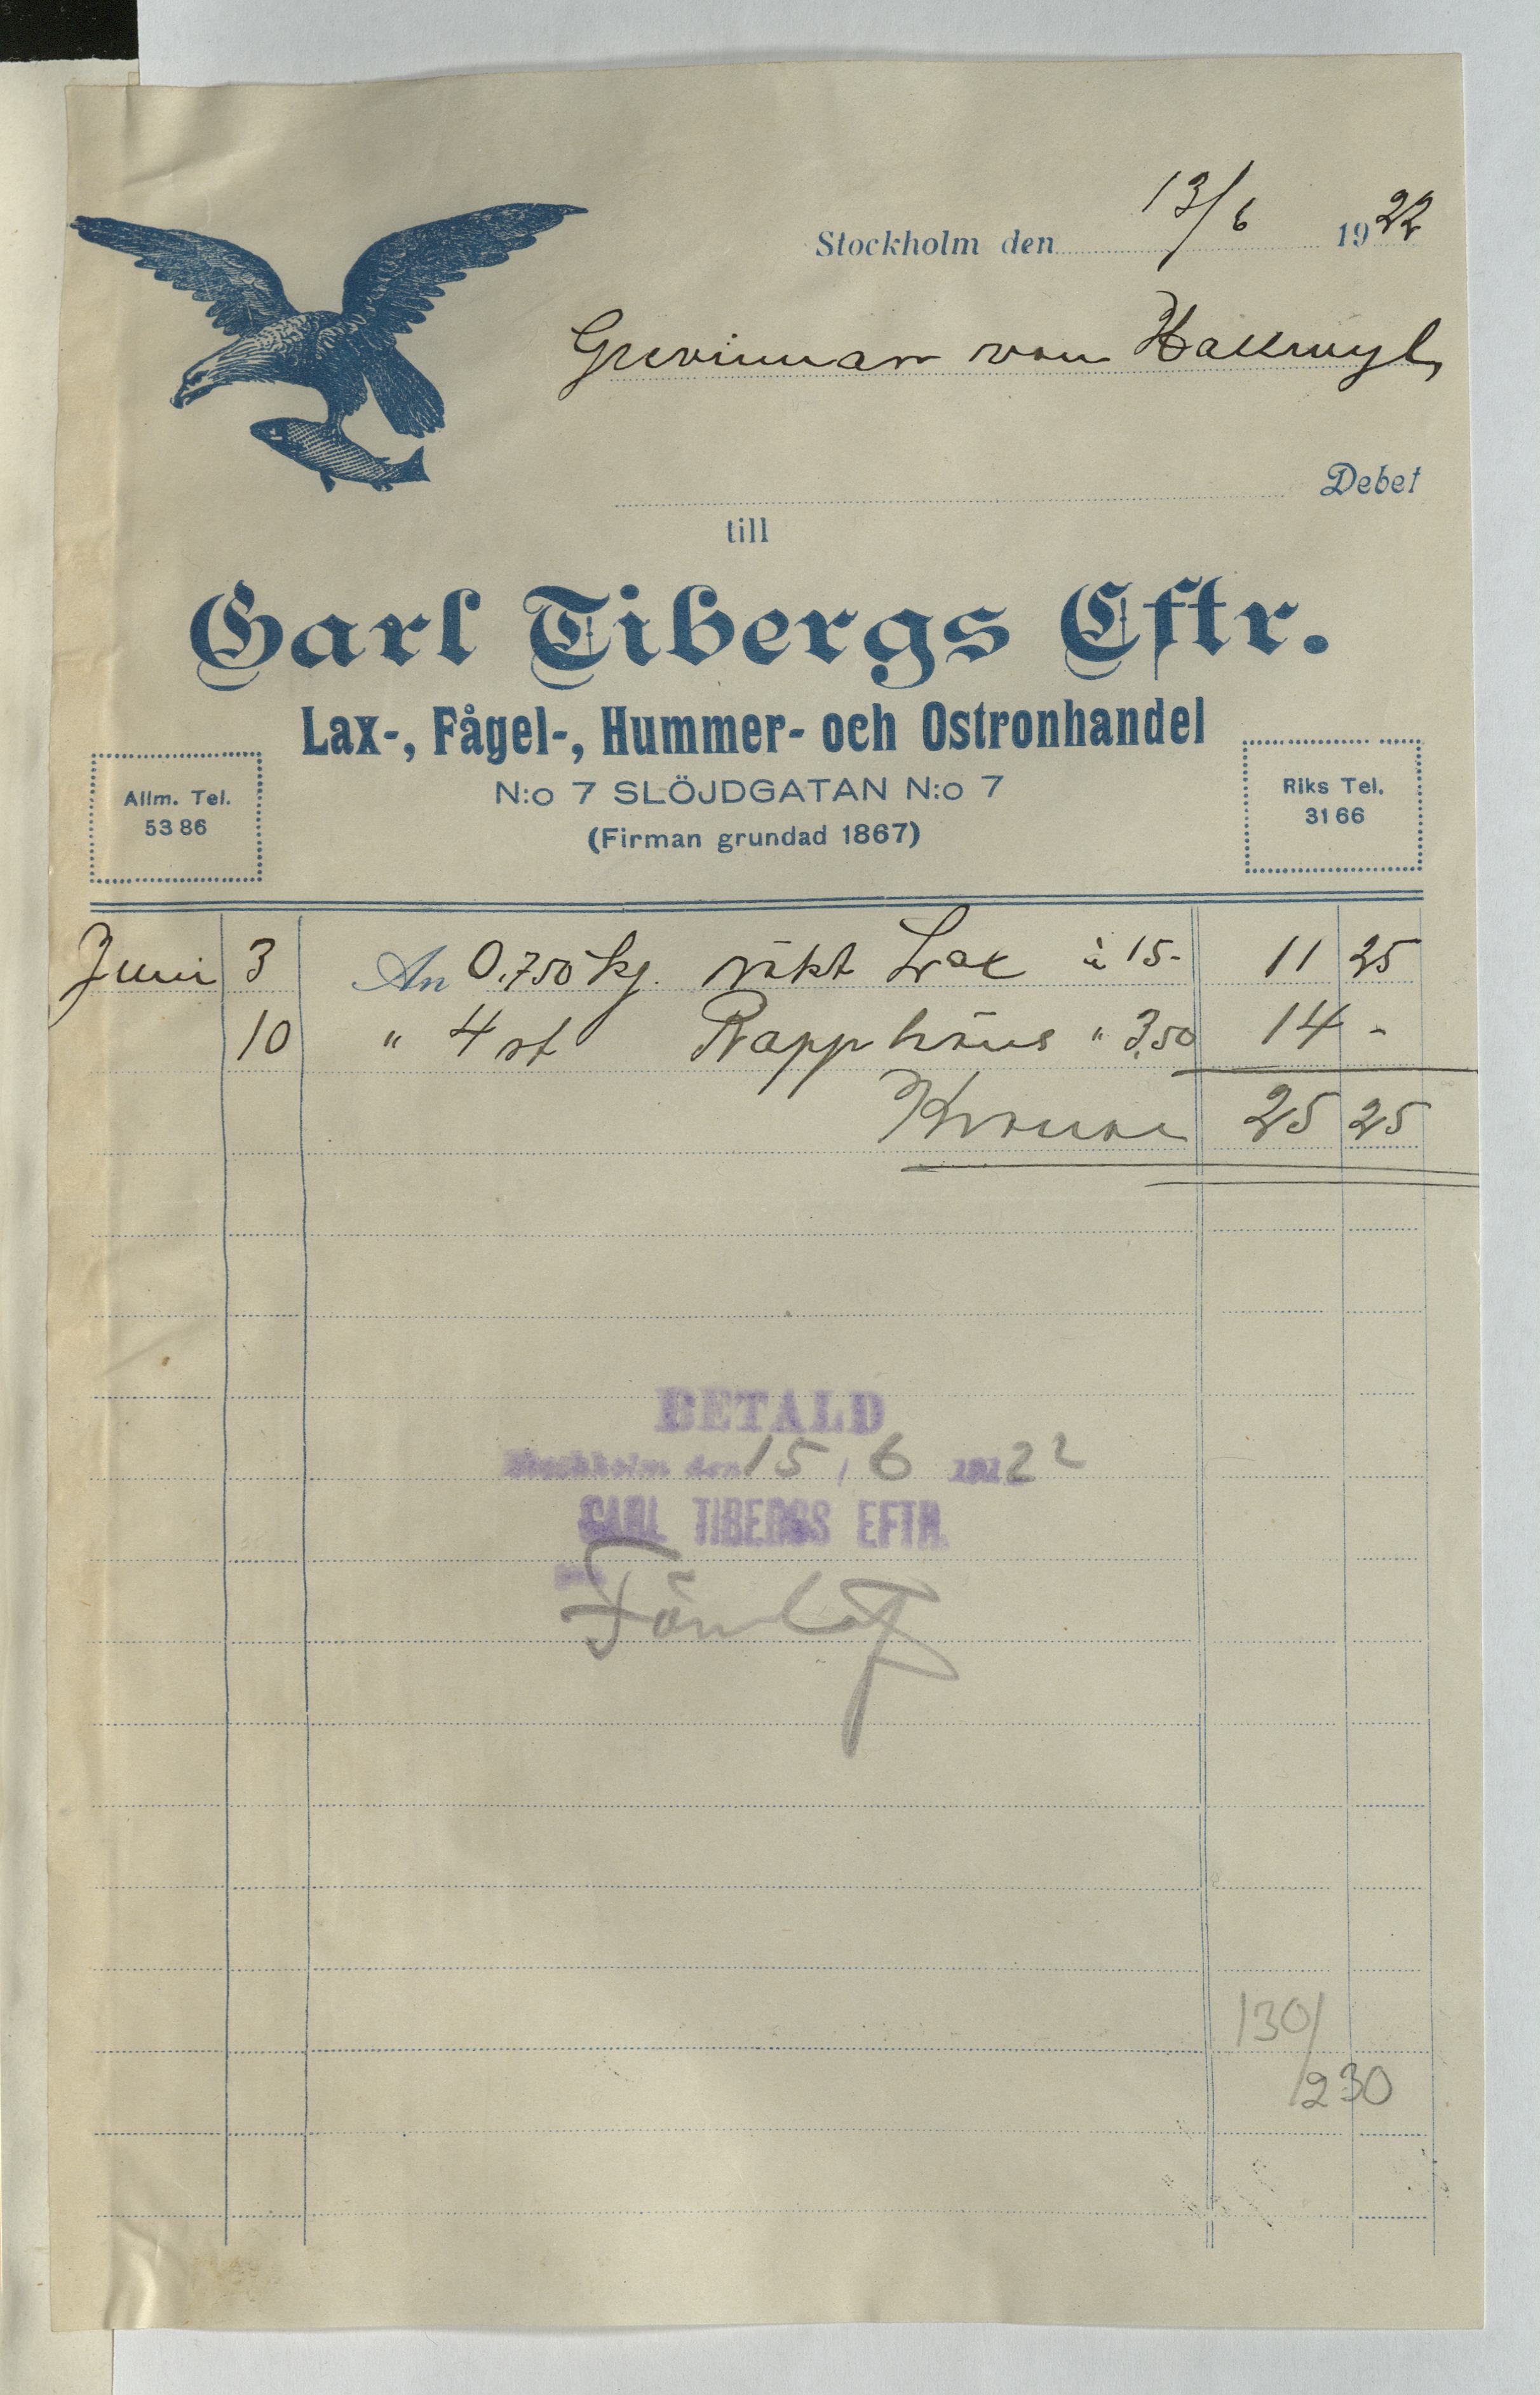 Stockholm den 13/6 1922
Grevinnan von Hallwyl,
Debet
till
Carl Tibergs Eftr.
Lax-, Fågel-, Hummer- och Ostronhandel
N:o 7 SLÖJDGATAN N:o 7
(Firman grundad 1867)
Allm. Tel.
53 86
Riks Tel.
31 66
Juni 3 An 0,750 kg. rökt Lax à 15.- 11 25
10 " 4 st Rapphöns " 3,50 14 -
Kronor 25 25
BETALD
Stockholm den 15/6 22
CARL TIBERGS EFTR.
130/
230